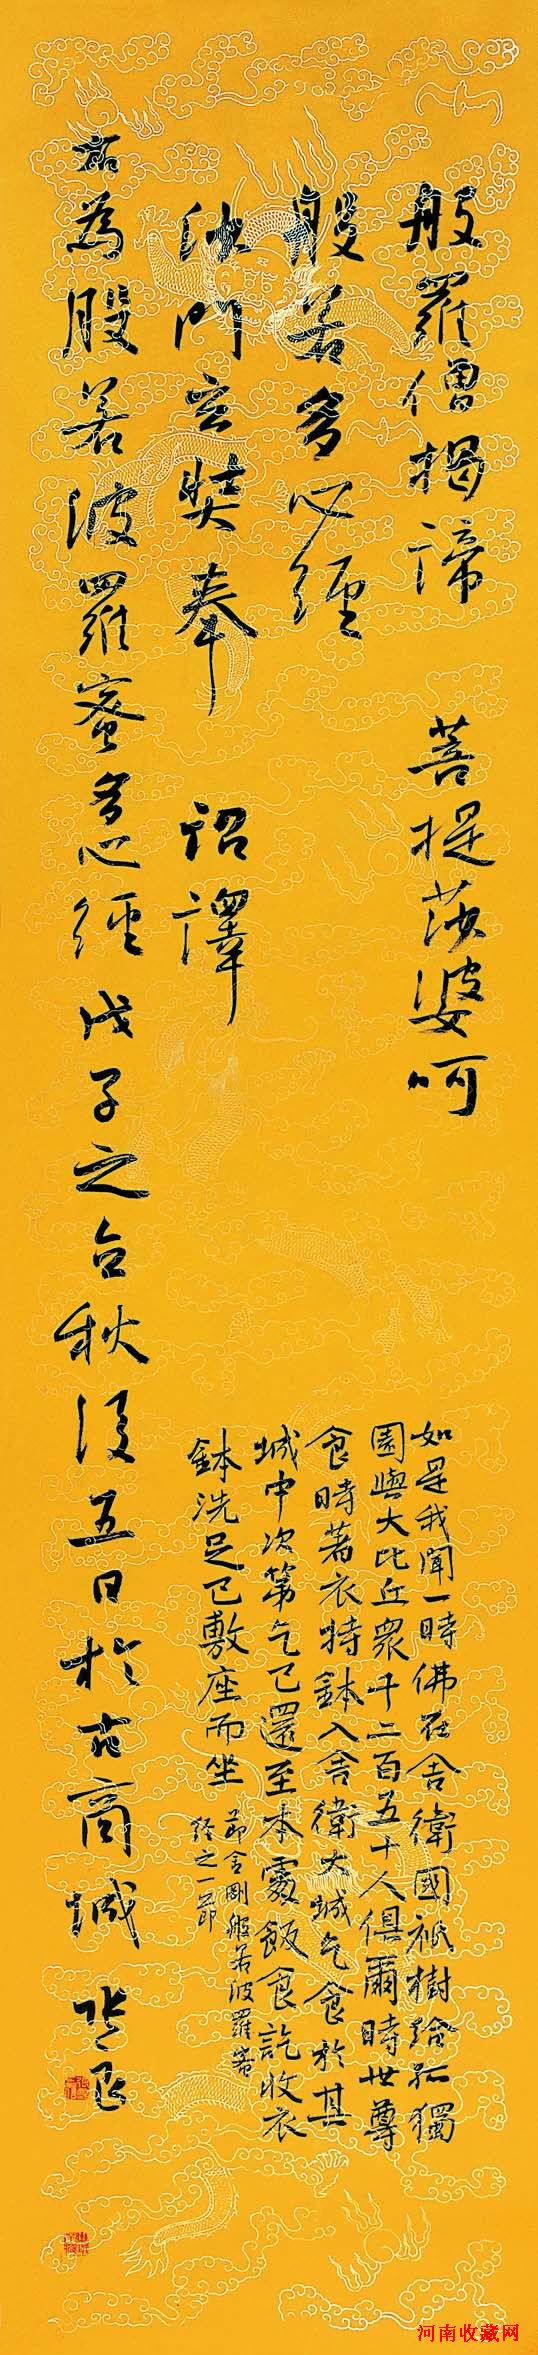 般羅僧揭諦 菩提莎婆呵
般若多心經
沙門玄奘奉 詔譯
右為般若波羅蜜多心經戊子之仲秋後五日於古商城
如是我聞一時佛在舍衛國祇樹給孤獨
園與大比丘眾千二百五十人俱爾時世尊
食時著衣持鉢入舍衛大城乞食於其
城中次第乞已還至本處飯食訖收衣
鉢洗足已敷座而坐
節金剛般若波羅蜜
經之一節
河南收藏网